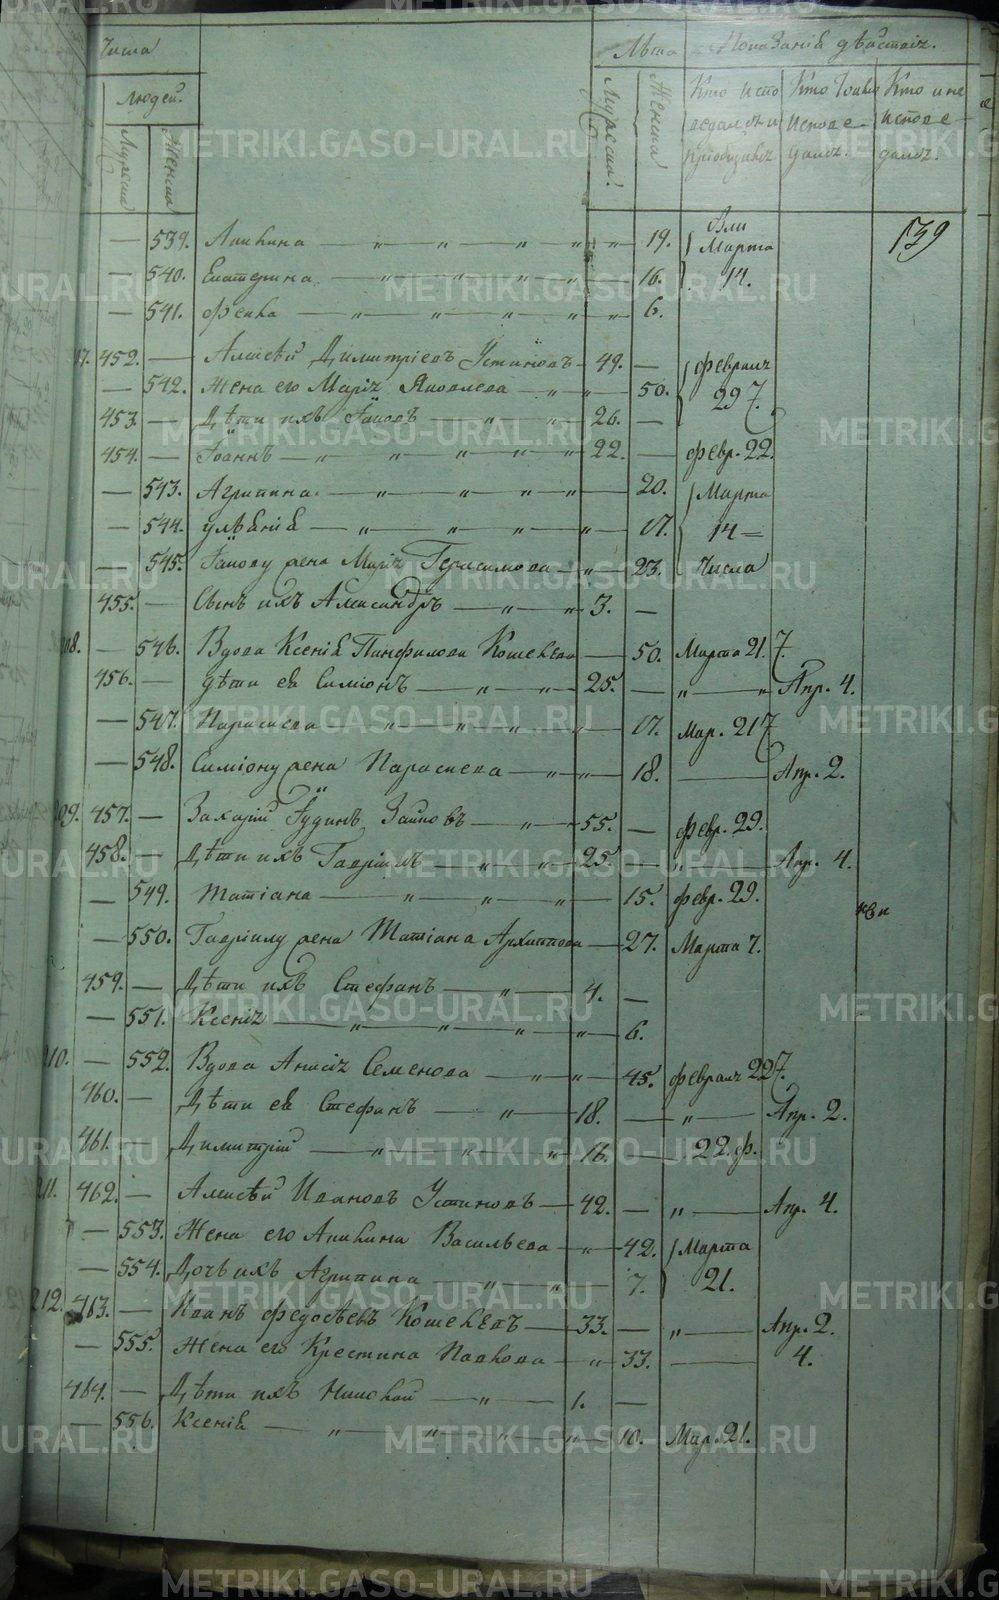 Числа
Лѣта Показанїе дѣйствїй.
Людей.
Мужеска Женска
Мужеска. Женска
Кто испо
ведался и
Кто только
испове-
дался.
Кто и не
испове-
дался.
139
— 539. Аникина — „ — „ — „ — „ „ — 19. Они Марта
— 540. Екатерина — „ — „ — „ — „ — 16. 14.
— 541. Фекла — „ — „ — „ — „ „ 6.
452. — Алексѣй Димитріевъ Устиновъ — 49. — Февраля
— 542. Жена его Марія Яковлева — „ — „ — 50. 29 7.
453. — Дѣти ихъ Іаковъ — „ — „ — 26. —
454. — Іоаннъ — „ — „ — „ — „ 22. — Февр. 22.
— 543. Агрипина — „ — „ — „ — „ — 20. Марта
— 544. Улѣянія — „ — „ — „ — „ — 17. 14 —
— 545. Іакову жена Марія Герасимова — „ — 23. Числа
455. — Сынъ ихъ Александръ — „ — „ 3. —
208. — 546. Вдова Ксенія Панфилова Кошелева — 50. Марта 21. 7.
456. — Дѣти ея Симіонъ — „ — „ 25. — „ — „ Апр. 4.
— 547. Параскева — „ — „ — „ — 17. Мар. 21 7
— 548. Симіону жена Параскева — „ — „ — 18. — Апр. 2.
209. 457. — Захарій Іудинъ Зайковъ — „ — 55. — Февр. 29.
458. — Дѣти ихъ Гавріилъ — „ — „ 25. — „ — Апр. 4.
— 549. Татіана — „ — „ — „ — 15. Февр. 29.
— 550. Гавріилу жена Татіана Архипова — 27. Марта 7.
459. — Дѣти ихъ Стефанъ — „ — 4. —
— 551. Ксенія — „ — „ — „ — „ — 6.
210. — 552. Вдова Анисія Семенова — „ — „ — 45. Февраля 22 7.
460. — Дѣти ея Стефанъ — „ — 18. — „ — Апр. 2.
461. Димитрій — „ — „ — „ 16. — 22. Ф.
211. 462. — Алексѣй Ивановъ Устиновъ — 42. — „ — Апр. 4.
— 553. Жена его Аникина Васильева — „ — 42. Марта
— 554. Дочь ихъ Агрипина „ — „ — 7. 21.
212. 463. — Иванъ Федосѣевъ Кошелевъ — 33. — „ — Апр. 2.
— 555. Жена его Крестина Павлова — „ 33. — 4.
464. — Дѣти ихъ Николай — „ — 1. —
— 556. Ксенія — „ — „ — „ — „ 10. Мар. 21.
METRIKI.GASO-URAL.RU